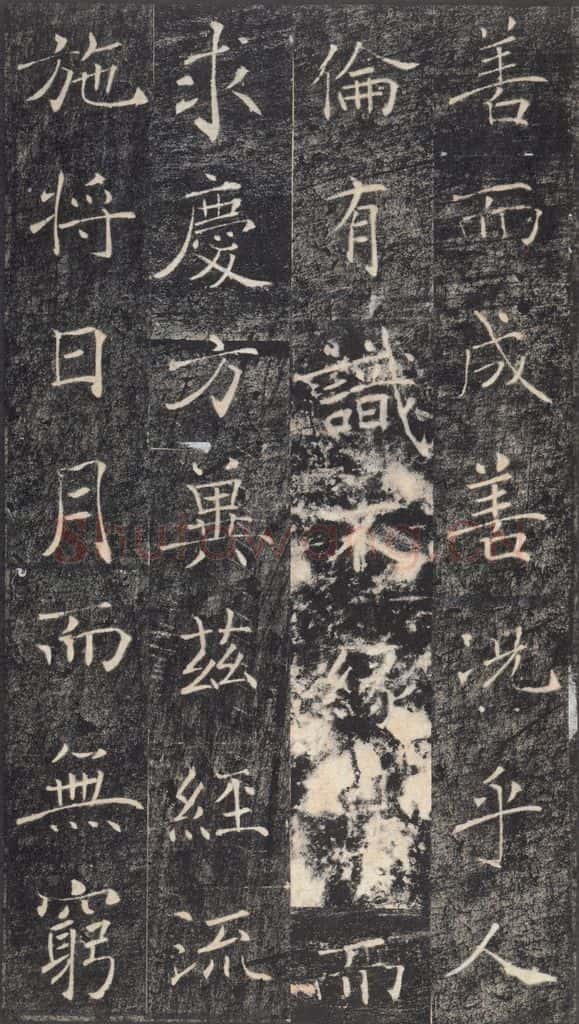 善而成善況乎人
倫有識不緣而
求慶方冀茲經流
施将日月而無窮
Shufawang.cn